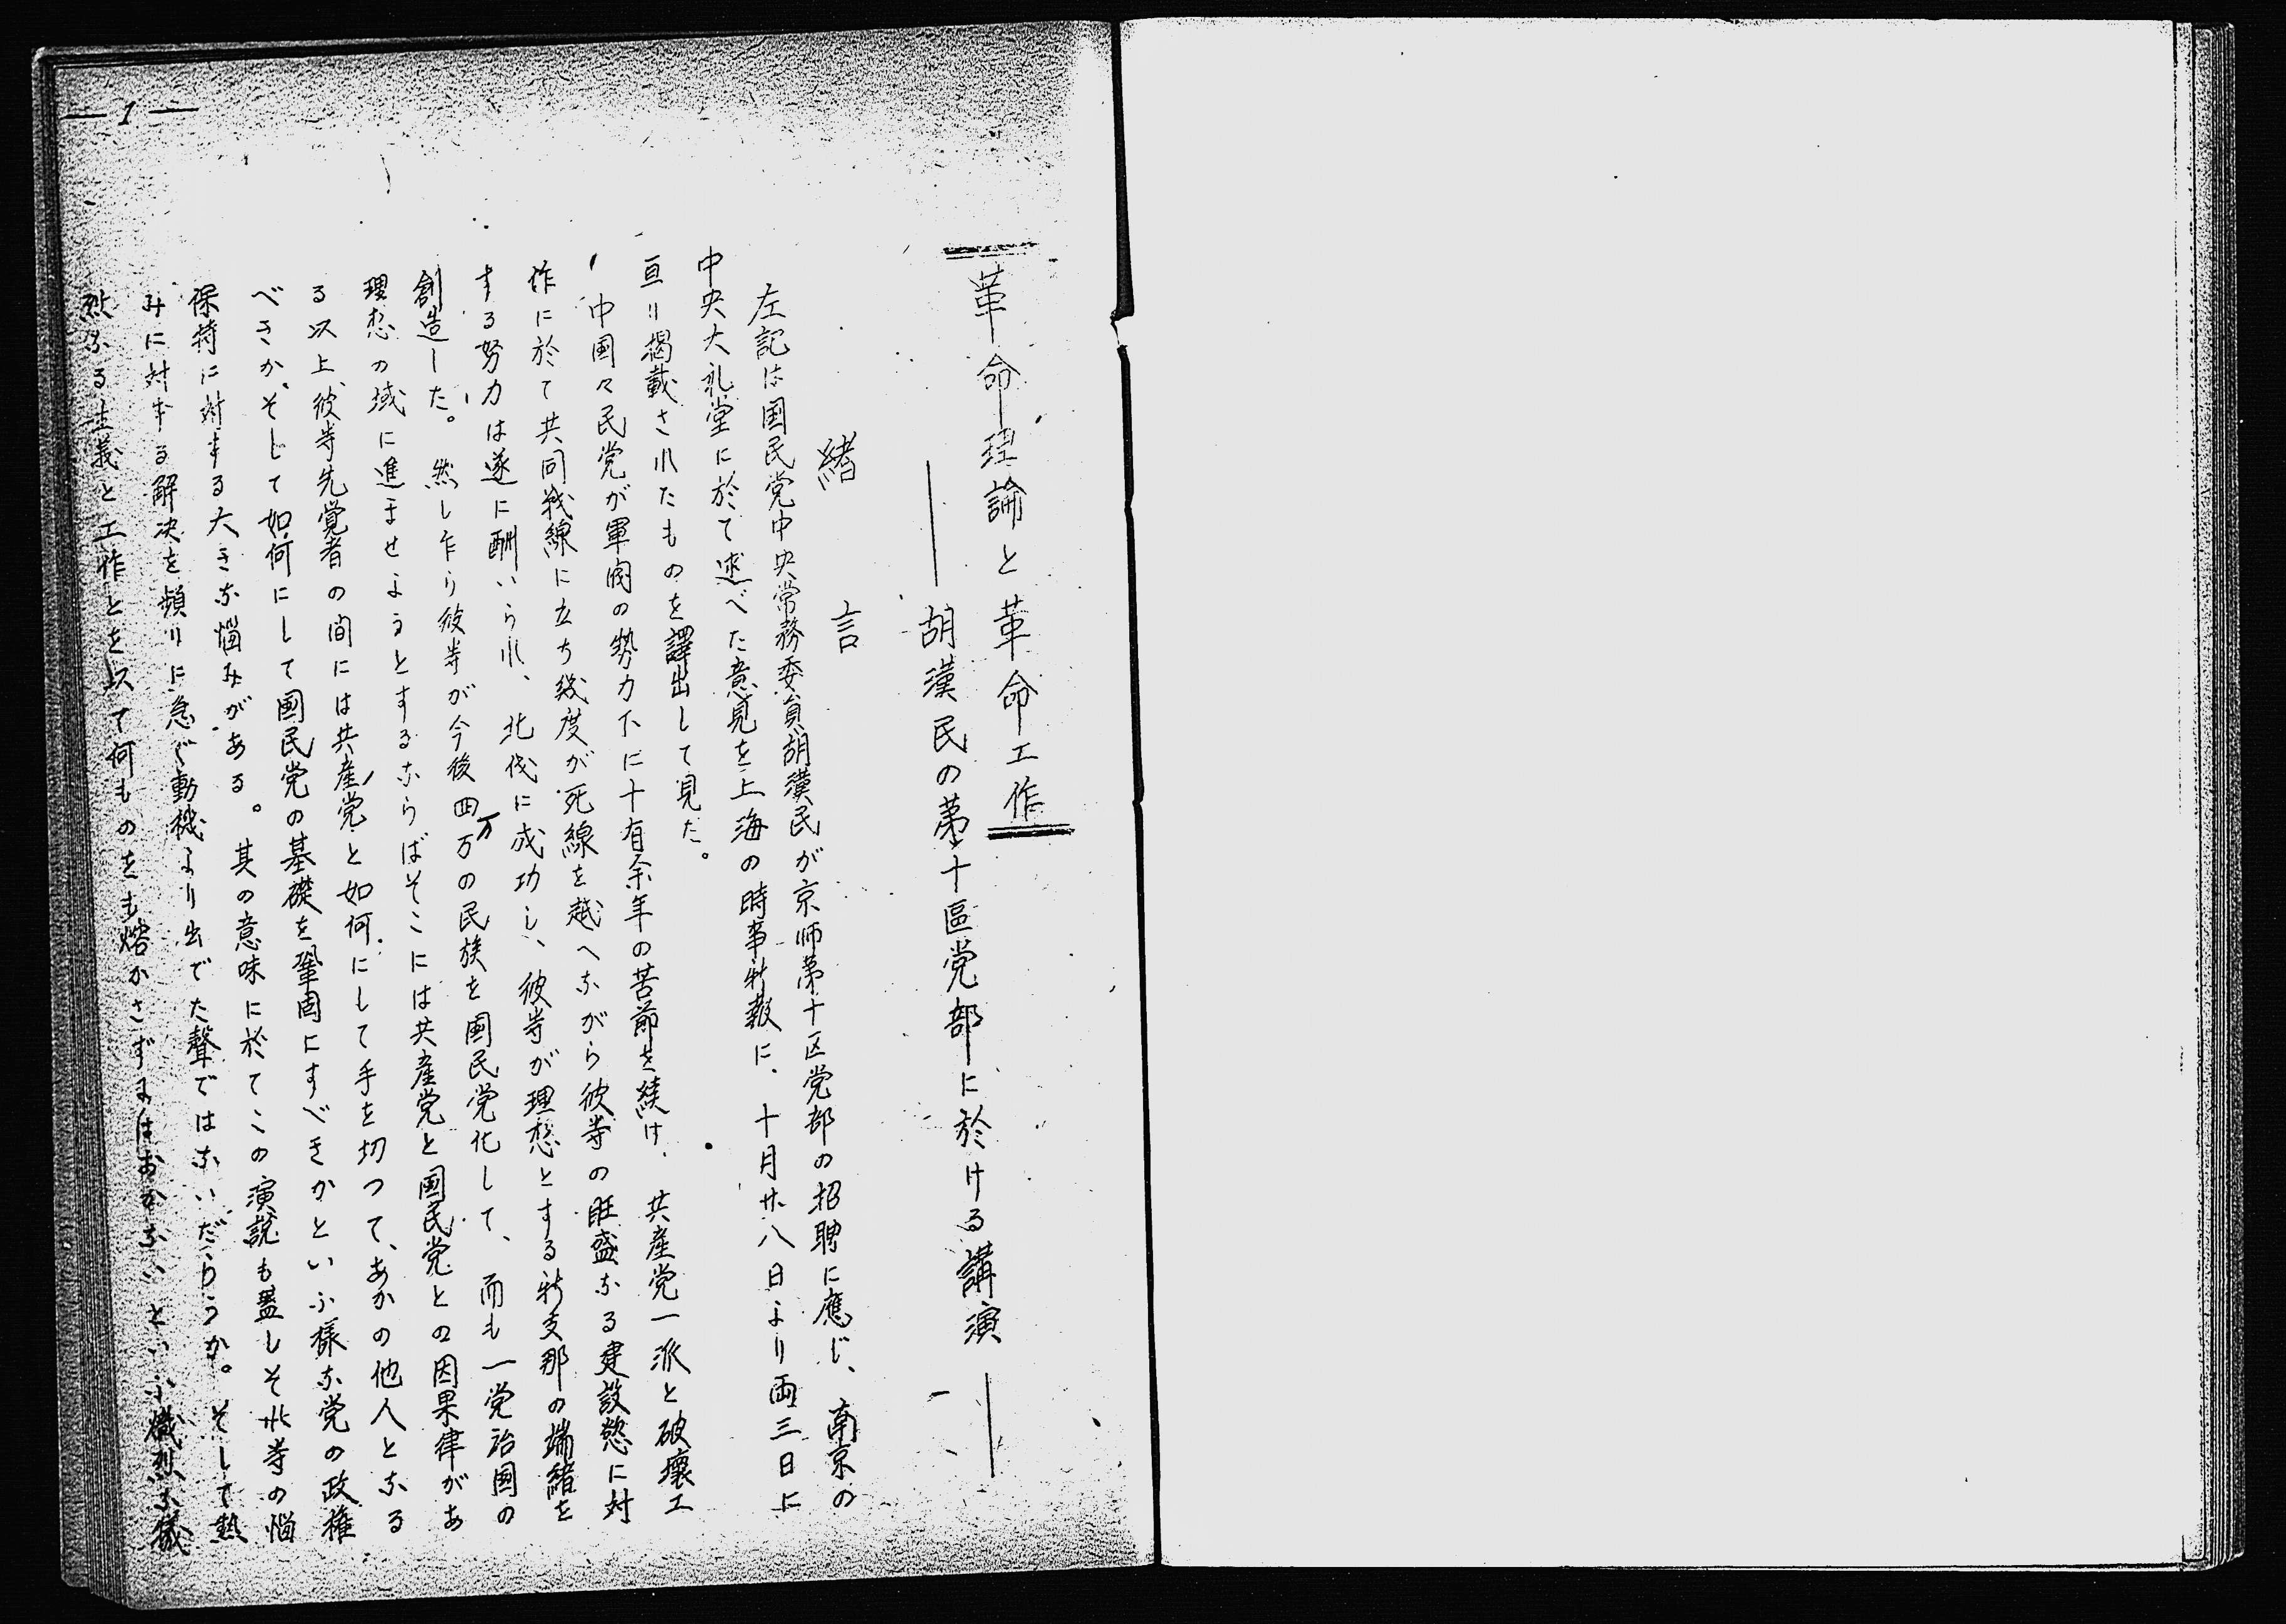 革命理論と革命工作
――胡漢民の第十區党部に於ける講演――
緒言
左記は国民党中央常務委員胡漢民が京师第十区党部の招聘に應じ、南京の
中央大礼堂に於て述べた意見を上海の時事新報に、十月廿八日より両三日に
亘り掲載されたものを譯出して見た。
中国々民党が軍閥の勢力下に十有余年の苦節を続け、共産党一派と破壊工
作に於て共同戦線に立ち幾度が死線を越へながら彼等の旺盛なる建設慾に対
する努力は遂に酬いられ、北伐に成功し、彼等が理想とする新支那の端緒を
創造した。然し乍ら彼等が今後四万万の民族を国民党化して、而も一党治国の
理想の域に進ませようとするならばそこには共産党と国民党との因果律があ
る以上彼等先覚者の間には共産党と如何にして手を切つて、あかの他人となる
べきか、そして如何にして国民党の基礎を鞏固にすべきかといふ様な党の政権
保持に対する大きな悩みがある。其の意味に於てこの演説も蓋しそれ等の悩
みに対する解決を頻りに急ぐ動機より出でた聲ではないだらうか。そして熱
烈なる主義と工作とを以て何ものをも熔かさずにはおかないといふ熾烈な
― 1 ―